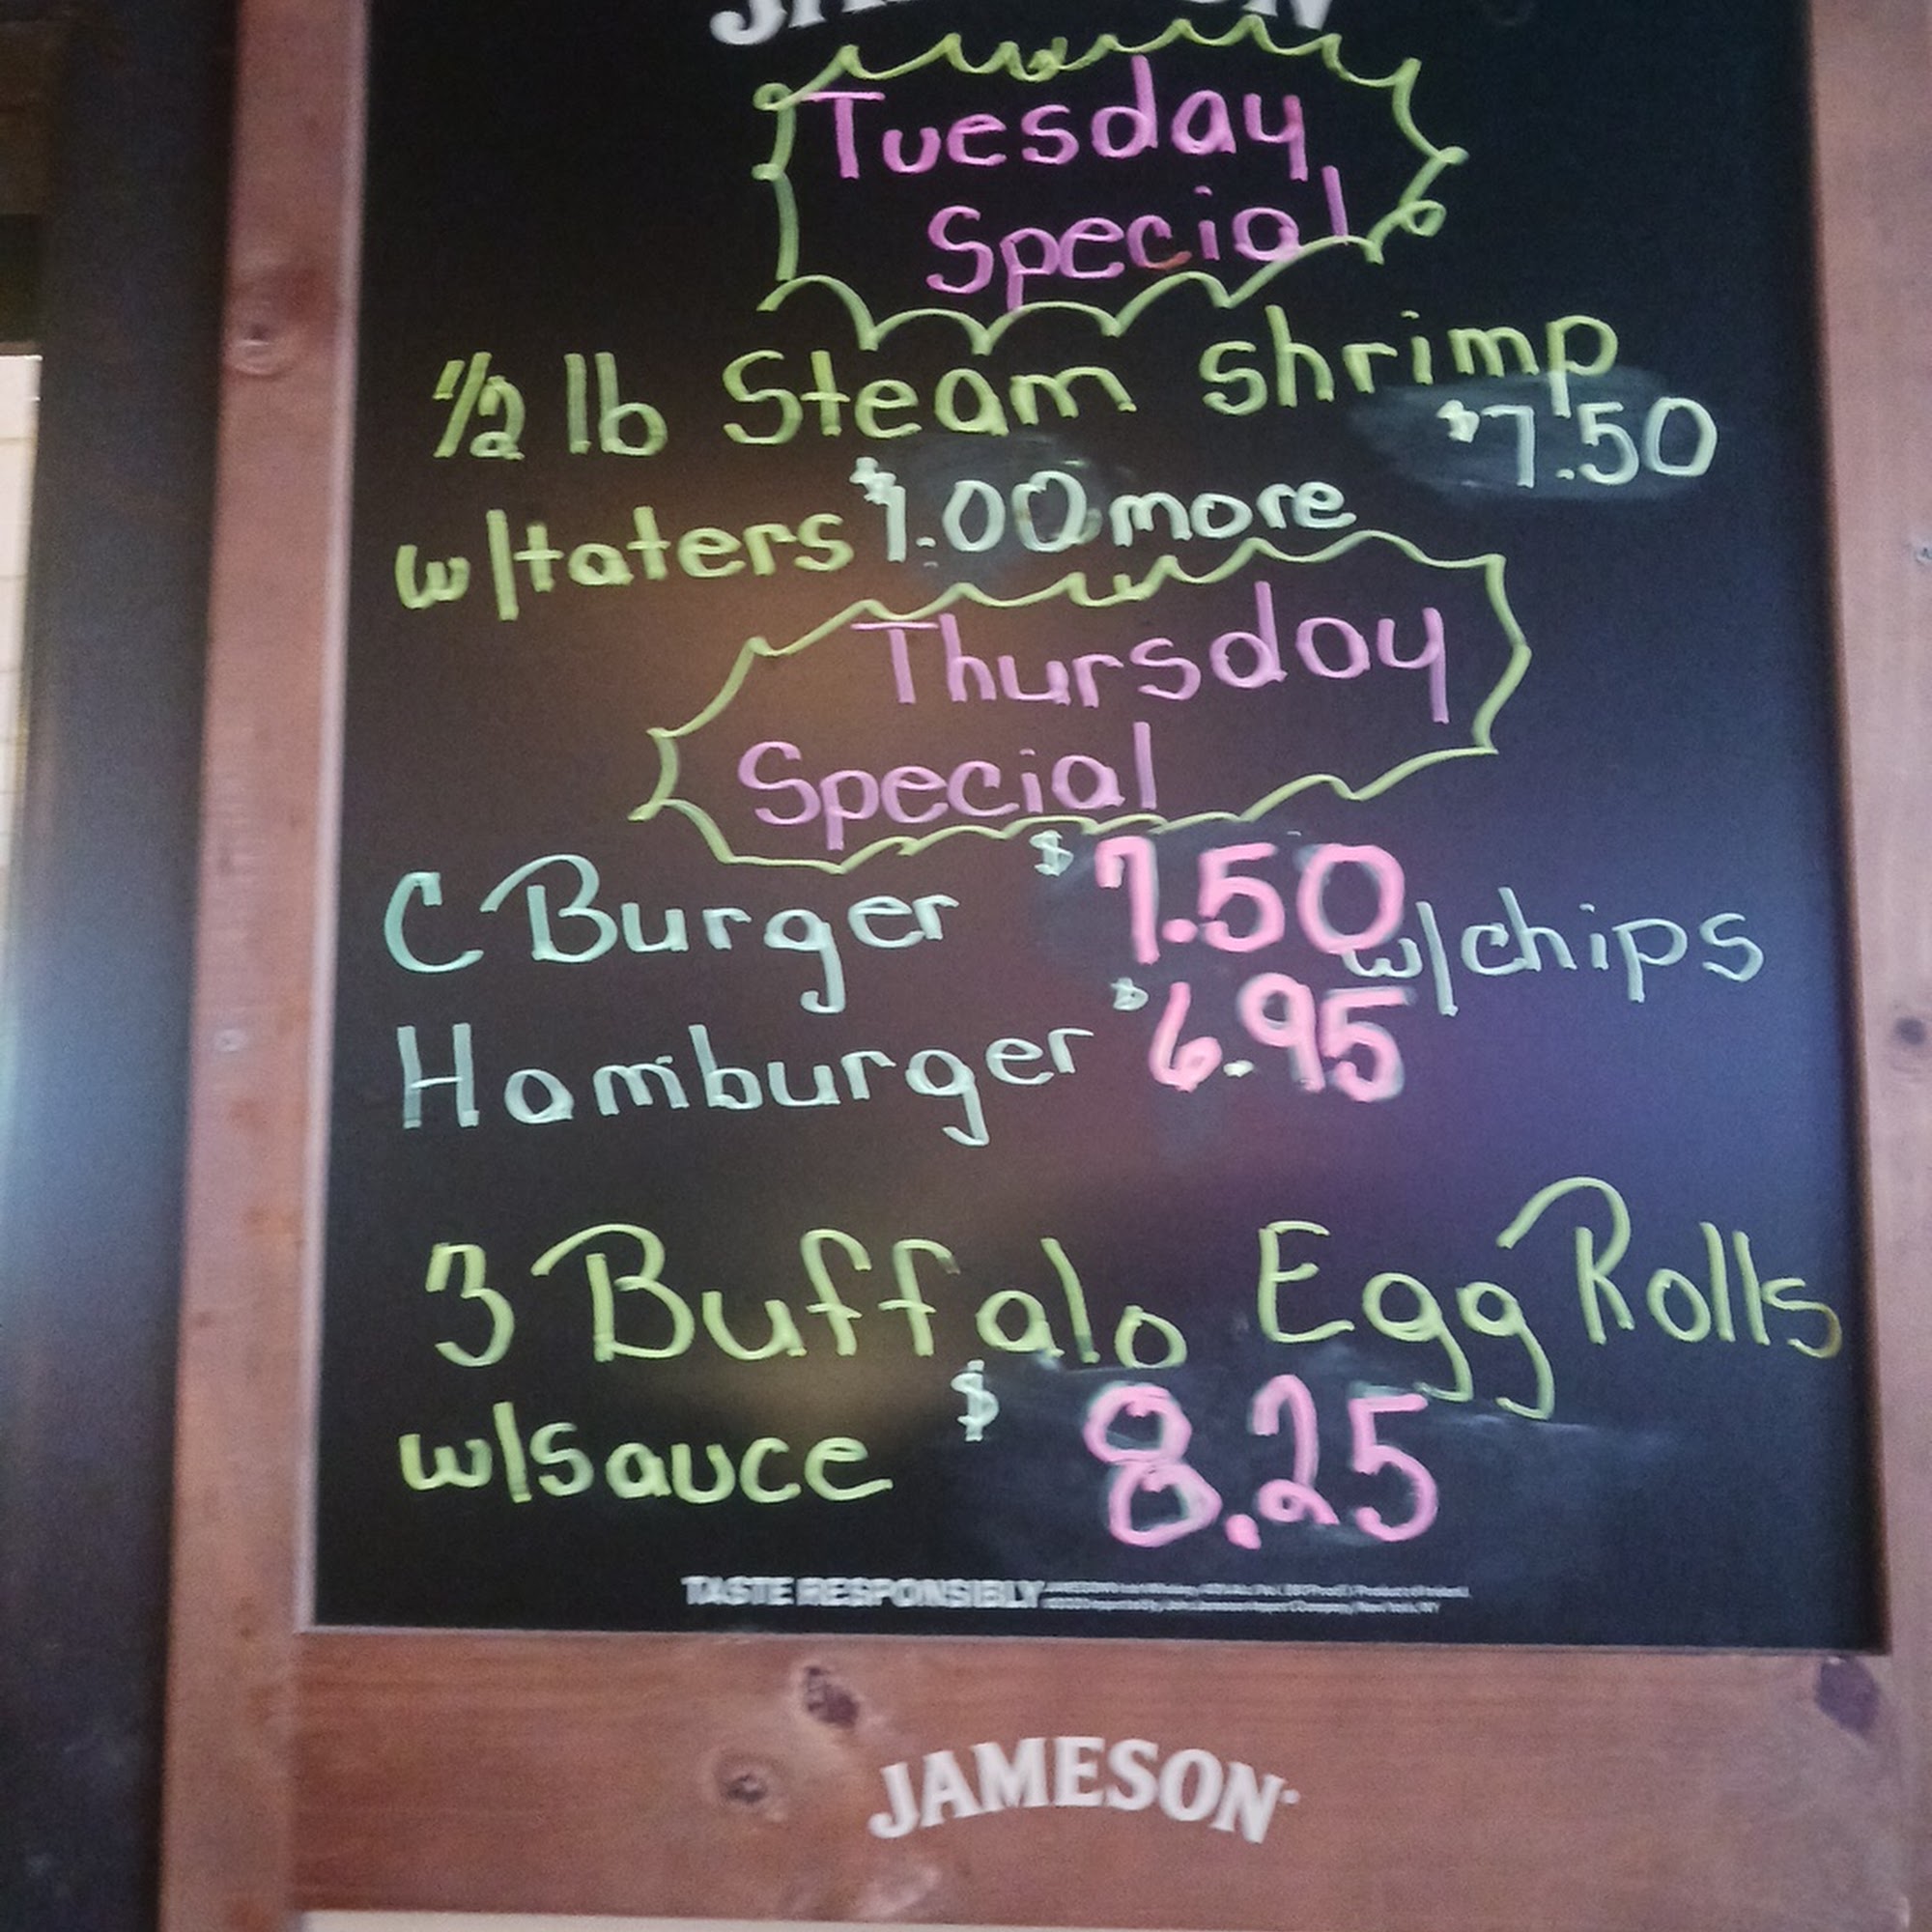 Tuesday
Special
1/2 lb Steam Shrimp
$7.50
w/taters $1.00 more
Thursday
Special
C Burger $7.50 w/chips
Hamburger $6.95
3 Buffalo Egg Rolls
w/sauce $8.25
TASTE RESPONSIBLY
JAMESON